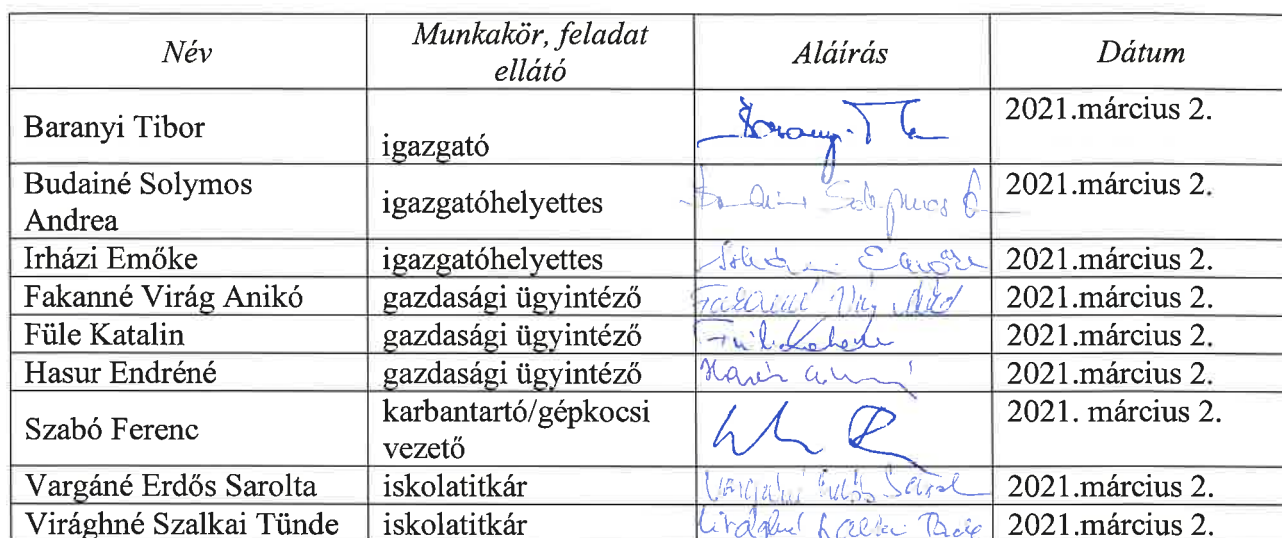 Név Munkakör, feladat ellátó Aláírás Dátum
Baranyi Tibor igazgató Baranyi T 2021.március 2.
Budainé Solymos Andrea igazgatóhelyettes Solymos 2021.március 2.
Irházi Emőke igazgatóhelyettes Emőke 2021.március 2.
Fakanné Virág Anikó gazdasági ügyintéző Fakanné 2021.március 2.
Füle Katalin gazdasági ügyintéző 2021.március 2.
Hasur Endréné gazdasági ügyintéző 2021.március 2.
Szabó Ferenc karbantartó/gépkocsi vezető 2021. március 2.
Vargáné Erdős Sarolta iskolatitkár Vargáné Erdős Sarol 2021.március 2.
Virághné Szalkai Tünde iskolatitkár Virághné Szalkai Tünde 2021.március 2.